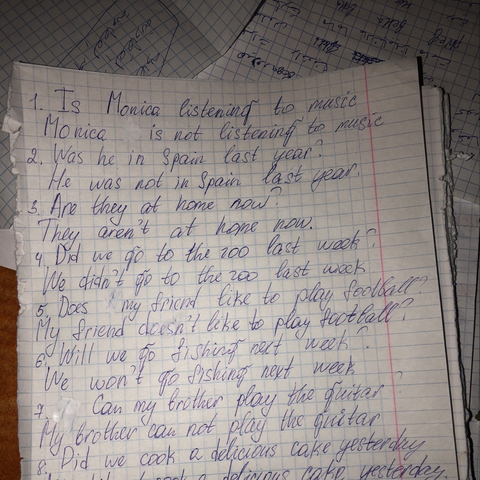 1. Is Monica listening to music
Monica is not listening to music
2. Was he in Spain last year?
He was not in Spain last year.
3. Are they at home now?
They aren't at home now.
4. Did we go to the zoo last week?
We didn't go to the zoo last week
5. Does my friend like to play football?
My friend doesn't like to play football?
6. Will we go fishing next week?
We won't go fishing next week
7. Can my brother play the guitar?
My brother can not play the guitar
8. Did we cook a delicious cake yesterday
cook a delicious cake yesterday.